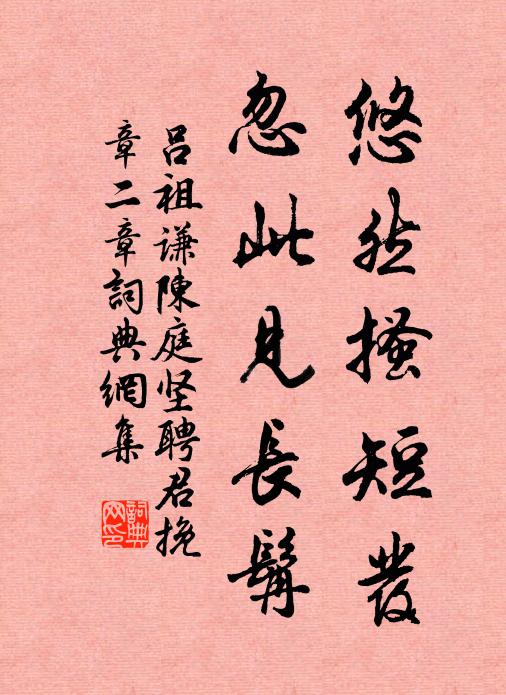 悠然搔短發
忽此見長髯
吕祖谦陳庭坚聘君挽
章二章詞典網集
詞典网印